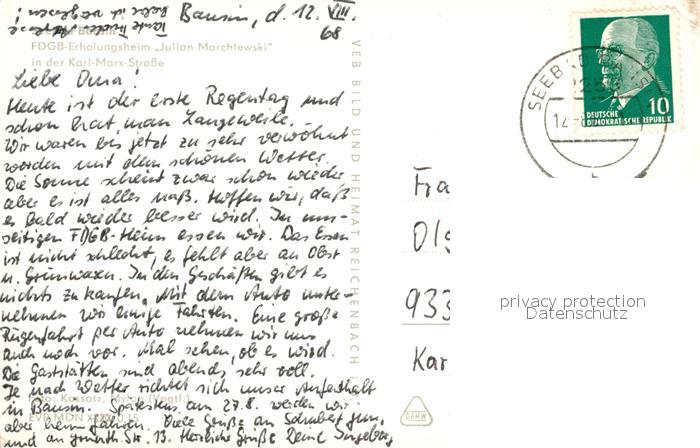 Bansin, d. 12. VIII. 68
FDGB-Erholungsheim „Julian Marchlewski"
in der Karl-Marx-Straße
Liebe Oma!
Heute ist der erste Regentag und
schon hat man Langeweile.
Wir waren bis jetzt zu sehr verwöhnt
worden mit dem schönen Wetter.
Die Sonne scheint zwar schon wieder
aber es ist alles naß. Hoffen wir, daß
es bald wieder besser wird. Im um-
seitigen FDGB-Heim essen wir. Das Essen
ist nicht schlecht, es fehlt aber an Obst
u. Grünwaren. In den Geschäften gibt es
nichts zu kaufen. Mit dem Auto unter-
nehmen wir einige Fahrten. Eine große
Rügenfahrt per Auto nehmen wir uns
auch noch vor. Mal sehen, ob es wird.
Die Gaststätten sind abends sehr voll.
Je nach Wetter richtet sich unser Aufenthalt
in Bansin. Spätestens am 27.8. werden wir
aber heimfahren. Viele Grüße an Schubert
und an Str. 13. Herzliche Grüße Deine Ingeborg
Foto: Kassatz, Mylau (Vogtl.)
VEB BILD UND HEIMAT REICHENBACH
SEEBAD
225
12.
DEUTSCHE
DEMOKRATISCHE REPUBLIK
10
Fra
Olg
933
Kar
privacy protection
Datenschutz
DAMW